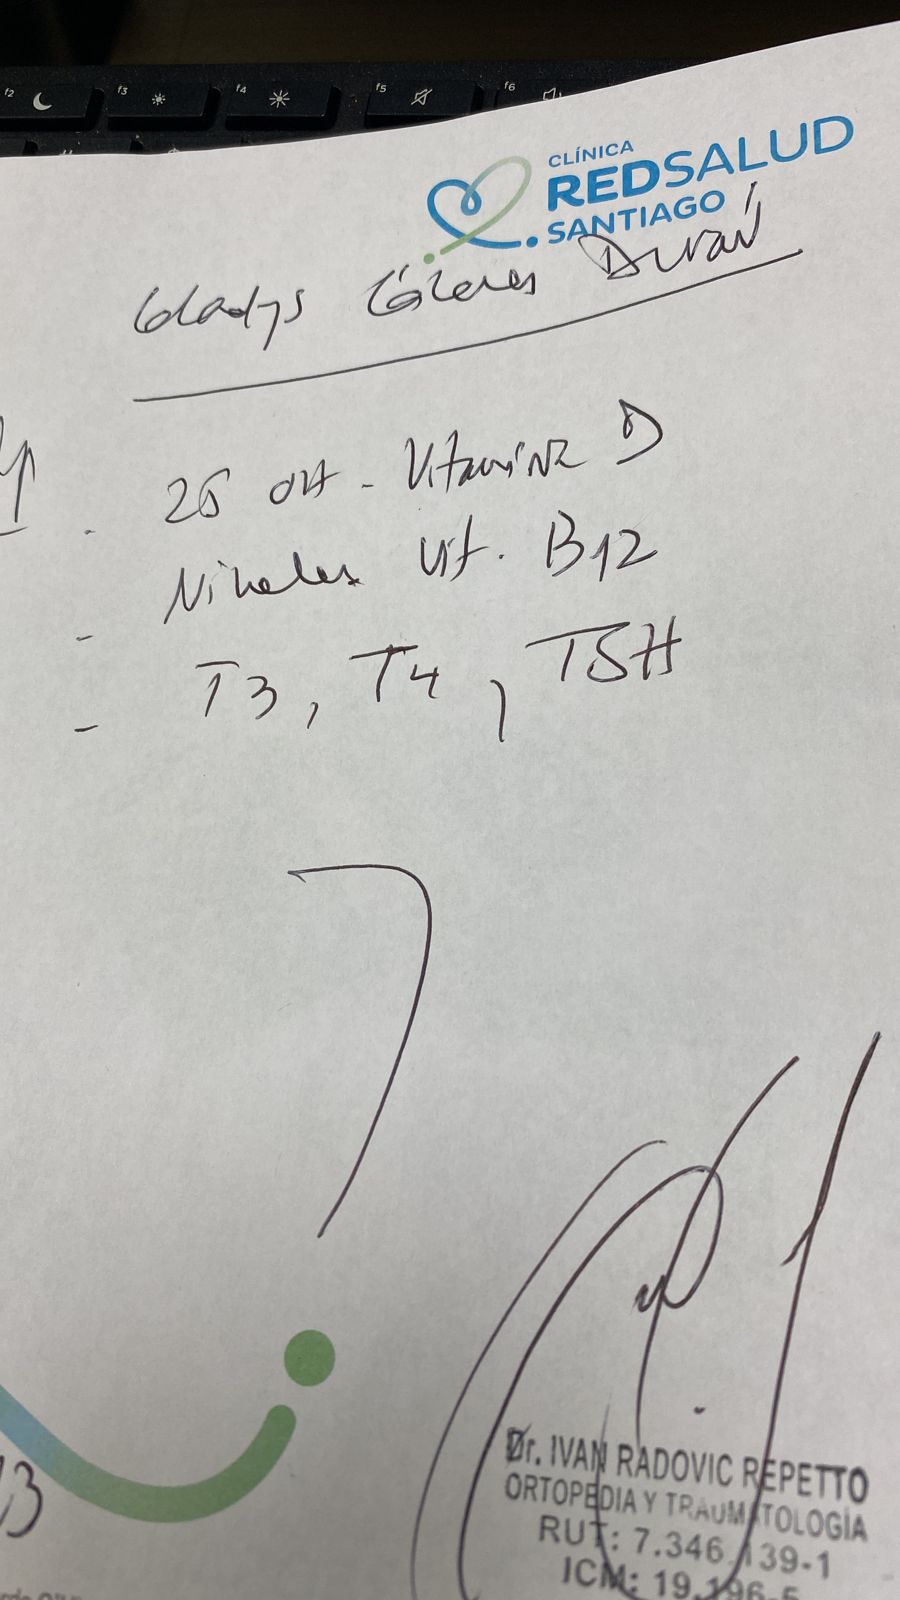 f2 f3 f4 f5 f6
CLÍNICA
REDSALUD
SANTIAGO
Gladys Cáceres Durán
Rp
. 25 OH - Vitamina D
- Niveles Vit. B12
- T3, T4, TSH
Dr. IVAN RADOVIC REPETTO
ORTOPEDIA Y TRAUMATOLOGÍA
RUT: 7.346.139-1
ICM: 19.196-5